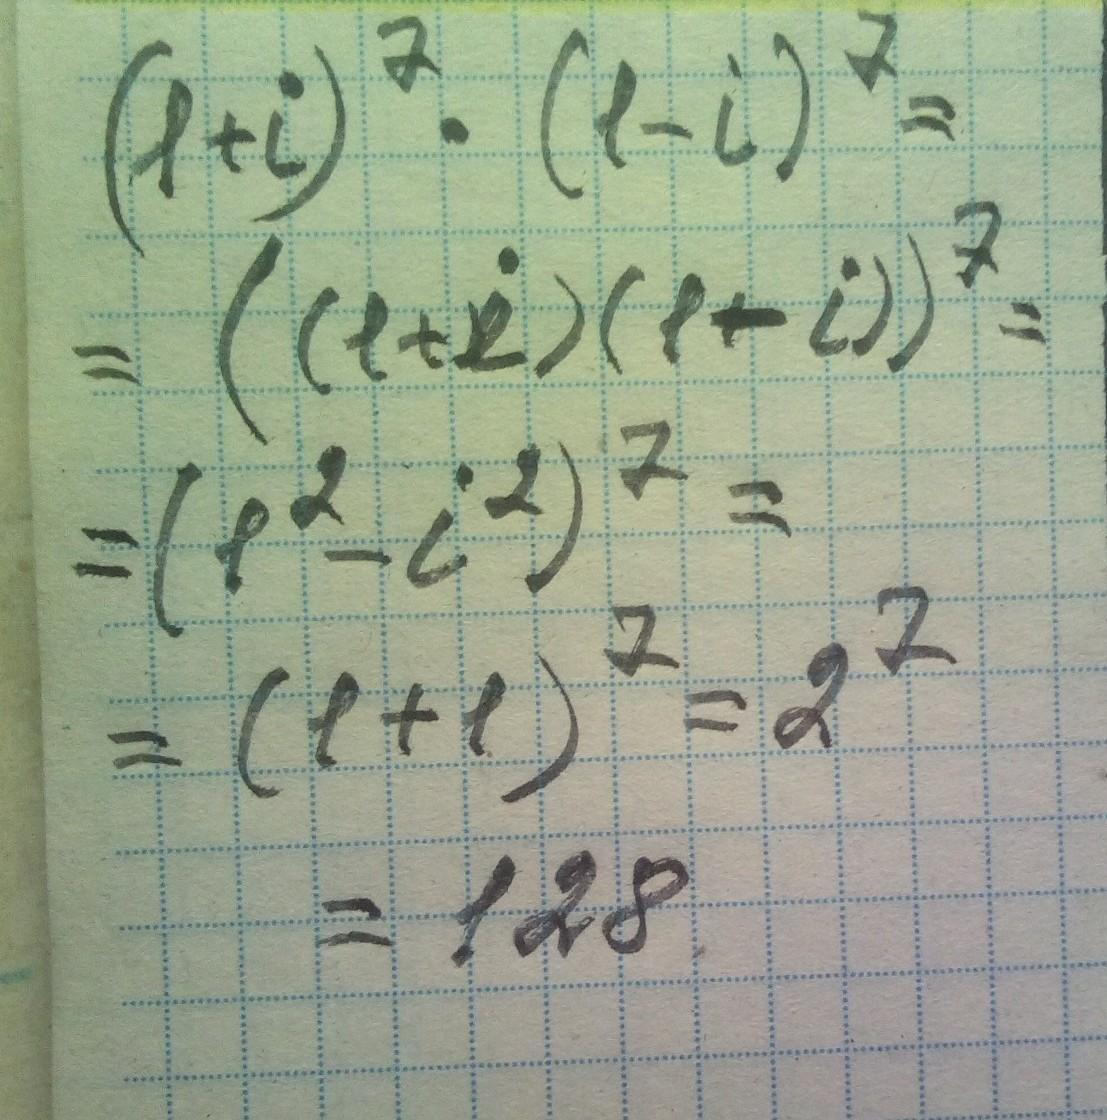 (1+i)⁷ · (1-i)⁷ =
= ((1+i)(1-i))⁷ =
= (1² - i²)⁷ =
= (1+1)⁷ = 2⁷
= 128